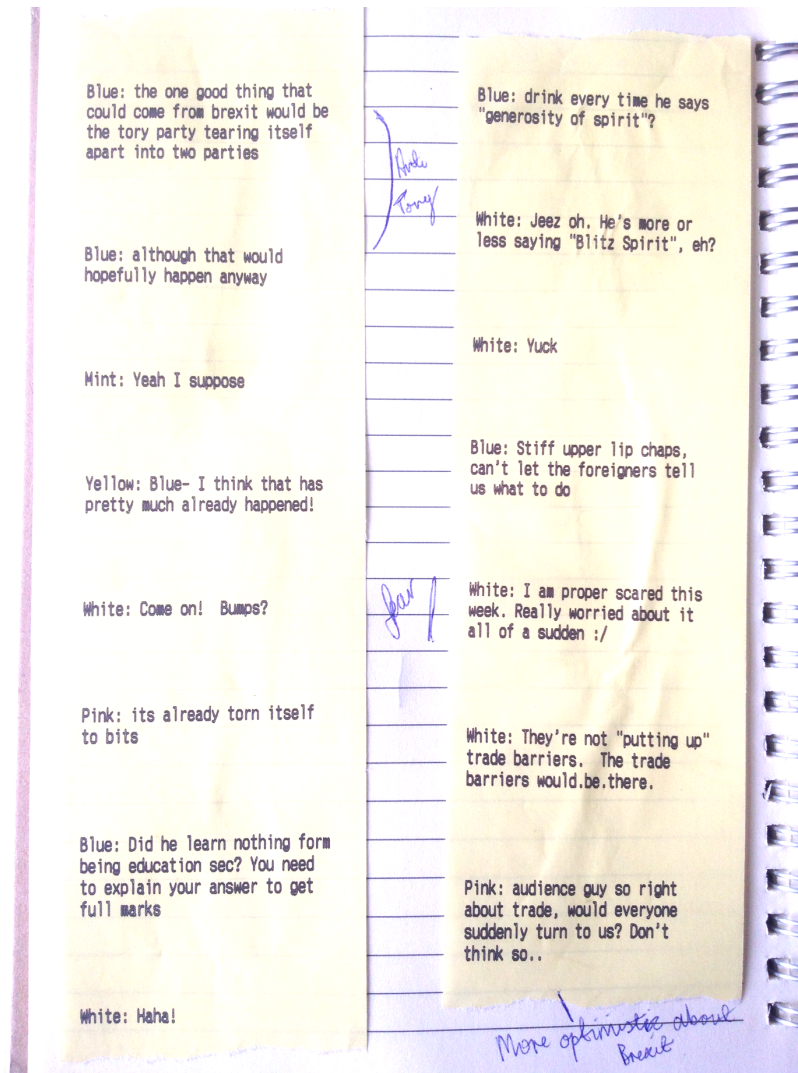 Blue: the one good thing that
could come from brexit would be
the tory party tearing itself
apart into two parties
Blue: although that would
hopefully happen anyway
Mint: Yeah I suppose
Yellow: Blue- I think that has
pretty much already happened!
White: Come on!  Bumps?
Pink: its already torn itself
to bits
Blue: Did he learn nothing form
being education sec? You need
to explain your answer to get
full marks
White: Haha!
Tory
fear
Blue: drink every time he says
"generosity of spirit"?
White: Jeez oh. He's more or
less saying "Blitz Spirit", eh?
White: Yuck
Blue: Stiff upper lip chaps,
can't let the foreigners tell
us what to do
White: I am proper scared this
week. Really worried about it
all of a sudden :/
White: They're not "putting up"
trade barriers.  The trade
barriers would.be.there.
Pink: audience guy so right
about trade, would everyone
suddenly turn to us? Don't
think so..
More optimistic about
Brexit